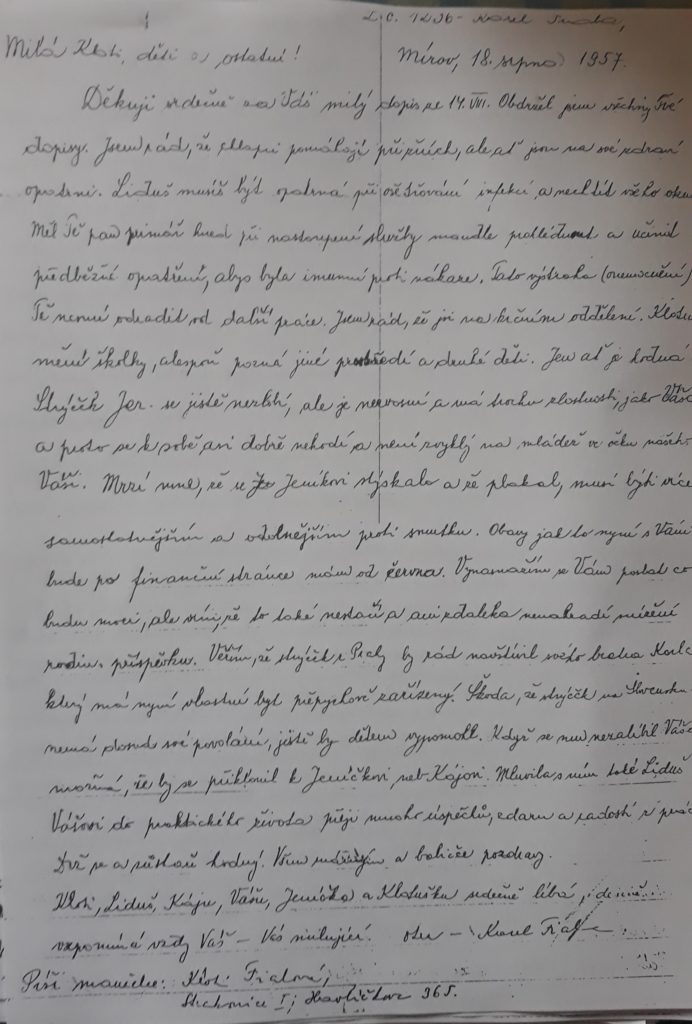 L. C. 1236 - Karel
Milá Kloti, děti a ostatní! Mírov, 18. srpna 1957.
Děkuji srdečně za Váš milý dopis ze 14. VIII. Obdržel jsem všechny Tvé
dopisy. Jsem rád, že chlapci pomáhají při žních, ale ať jsou na své zdraví
opatrni. Liduš musíš být opatrná při ošetřování infekcí a nechtít všeho
Měl Tě pan primář hned při nastoupení služby mandle prohlédnout a učinit
předběžné opatření, abys byla imunní proti nákaze. Tato výstraha (onemocnění)
Tě nesmí odradit od další práce. Jsem rád, že jsi na kožním oddělení.
mění školky, alespoň pozná jiné prostředí a druhé děti. Jen ať je hodná
Strýček Jar. se jistě nezlobí, ale je nervosní a má trochu zlostnosti, jako Váša
a proto se k sobě asi dobře nehodí a není zvyklý na mládež ve věku našeho
Váši. Mrzí mne, že se Jeníkovi stýskalo a že plakal, musí býti více
samostatnějším a odolnějším proti smutku. Obavy jak to nyní s Vámi
bude po finanční stránce mám od června. Vynasnažím se Vám poslat co
budu moci, ale vím, že to také nestačí a ani zdaleka nenahradí snížení
rodin. příspěvku. Věřím, že strýček z Prahy by rád navštívil svého bratra Karla
který má nyní vlastní byt přepychově zařízený. Škoda, že strýček na Slovensku
nemá dosud své povolání, jistě by dětem vypomohl. Když se mu nezalíbil Váša
možná, že by se přiklonil k Jeníčkovi neb Kájovi. Mluvila s ním také Liduš
Vášovi do praktického života přeji mnoho úspěchů, zdaru a radosti z práce
Drž se a zůstaň hodný! Všem a babičce pozdravy.
Kloti, Liduš, Káju, Vášu, Jeníčka a Klotušku srdečně líbá, denně
vzpomíná vždy Váš - Vás milující otec - Karel Fiala
Píši manželce: Kloti Fialová,
Strakonice I, Havlíčkova 365.